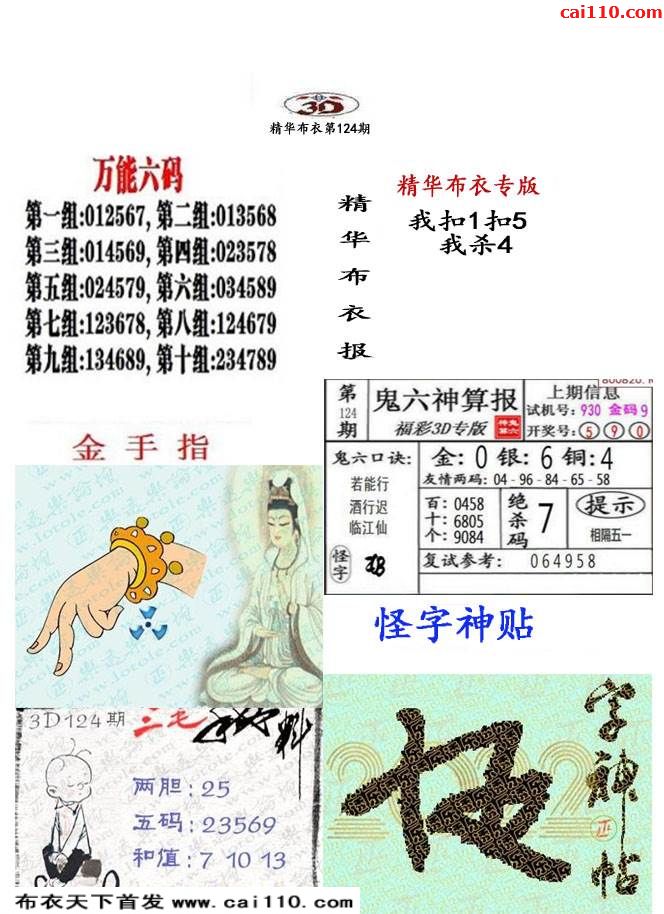 cai110.com
3D
精华布衣第124期
万能六码
第一组:012567,第二组:013568
第三组:014569,第四组:023578
第五组:024579,第六组:034589
第七组:123678,第八组:124679
第九组:134689,第十组:234789
精华布衣报
精华布衣专版
我扣1扣5
我杀4
金手指
第124期
鬼六神算报
福彩3D专版
上期信息
试机号:930 金码9
开奖号:590
鬼六口诀:
若能行
酒行迟
临江仙
怪字
金:0 银:6 铜:4
友情两码:04-96-84-65-58
百:0458
十:6805
个:9084
绝杀码
7
提示
相隔五一
复试参考: 064958
怪字神贴
3D124期
三毛
两胆:25
五码:23569
和值:7 10 13
字神帖
布衣天下首发 www.cai110.com